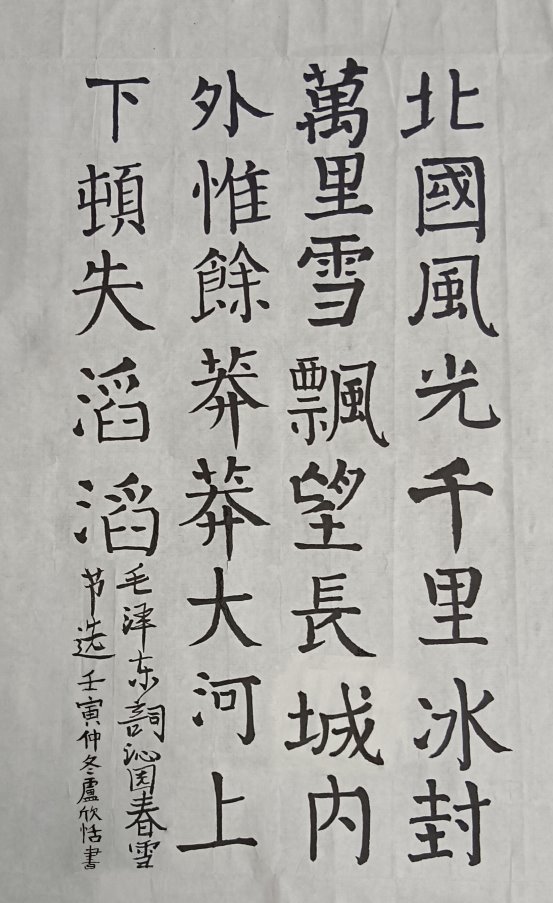 北國風光千里冰封
萬里雪飄望長城内
外惟餘莽莽大河上
下頓失滔滔
毛泽东詞沁园春雪
节选壬寅仲冬盧欣恬書